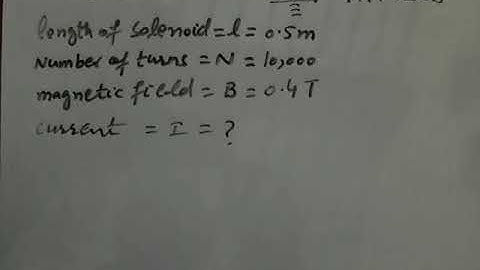 length of solenoid = l = 0.5m
Number of turns = N = 10,000
magnetic field = B = 0.4 T
current = I = ?